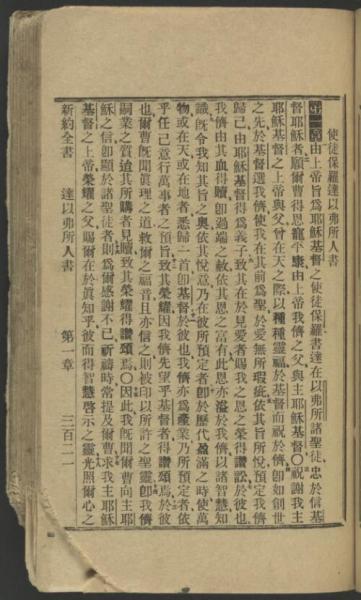 使徒保羅達以弗所人書
第一章由上帝旨爲耶穌基督之使徒保羅書達在以弗所諸聖徒忠於信基
督耶穌者願爾曹得恩寵平康由上帝我儕之父與主耶穌基督〇祝謝我主
耶穌基督之上帝與父曾在天之際以種種靈福於基督而祝於我儕卽如創世
之先於基督選我儕使我在其前爲聖於愛無所瑕疵依其旨所悅預定我儕
歸己由耶穌基督得爲義子致其在於見愛者賜我之恩之榮得讚訟於彼也
我儕由其血得贖卽過端之赦依其恩之富有此恩亦溢於我儕以諸智慧知
識旣令我知其旨之奧依其悅意乃在彼所預定者卽於歷代盈滿之時使萬
物或在天或在地者悉歸一首卽基督於彼也我儕亦爲產業乃所預定者依
乎任己意行萬事者之預旨致其榮耀因我儕先望乎基督者得讚頌焉於彼
也爾曹旣聞眞理之道救爾之福音且亦信之則被印以所許之聖靈卽我儕
嗣業之質迨其所購者見贖致其榮耀得讚頌焉〇因此我旣聞爾曹向主耶
穌之信卽顯於諸聖徒者則爲爾感謝不已祈禱時常提及爾曹求我主耶穌
基督之上帝榮耀之父賜爾在於眞知乎彼而得智慧啓示之靈光照爾心之
新約全書 達以弗所人書 第一章 三百二一